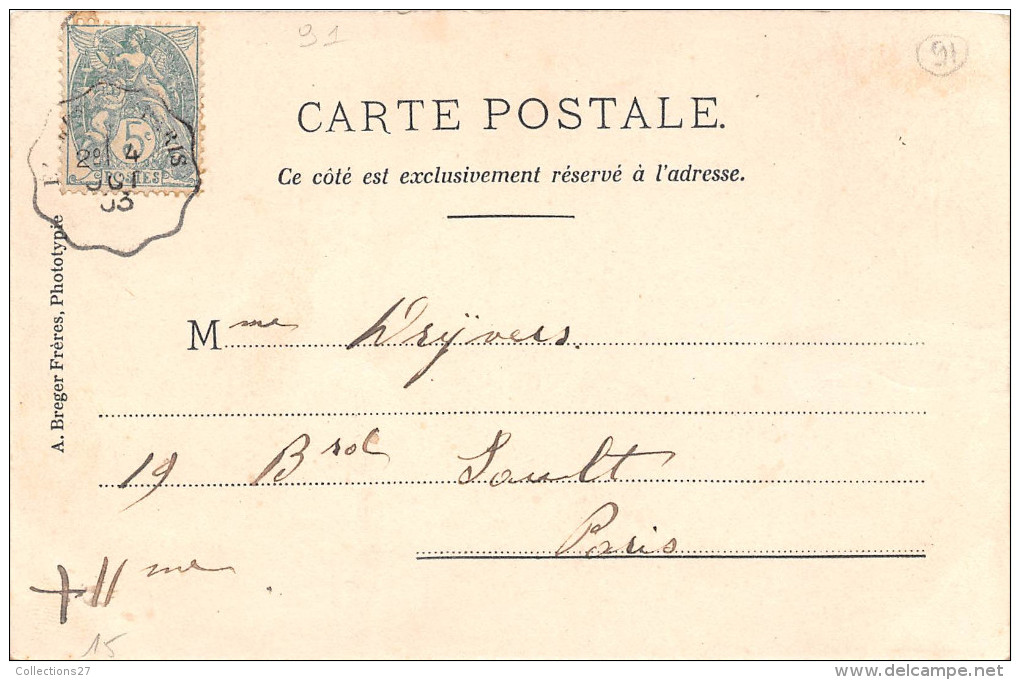 91
91
5c
POSTES
2e 4
OCT
03
CARTE POSTALE.
Ce côté est exclusivement réservé à l'adresse.
A. Breger Frères, Phototypie
Mme Dryvers.
19 Brd Soult
Paris
+ 11me
15
Collections27
www.delcampe.net